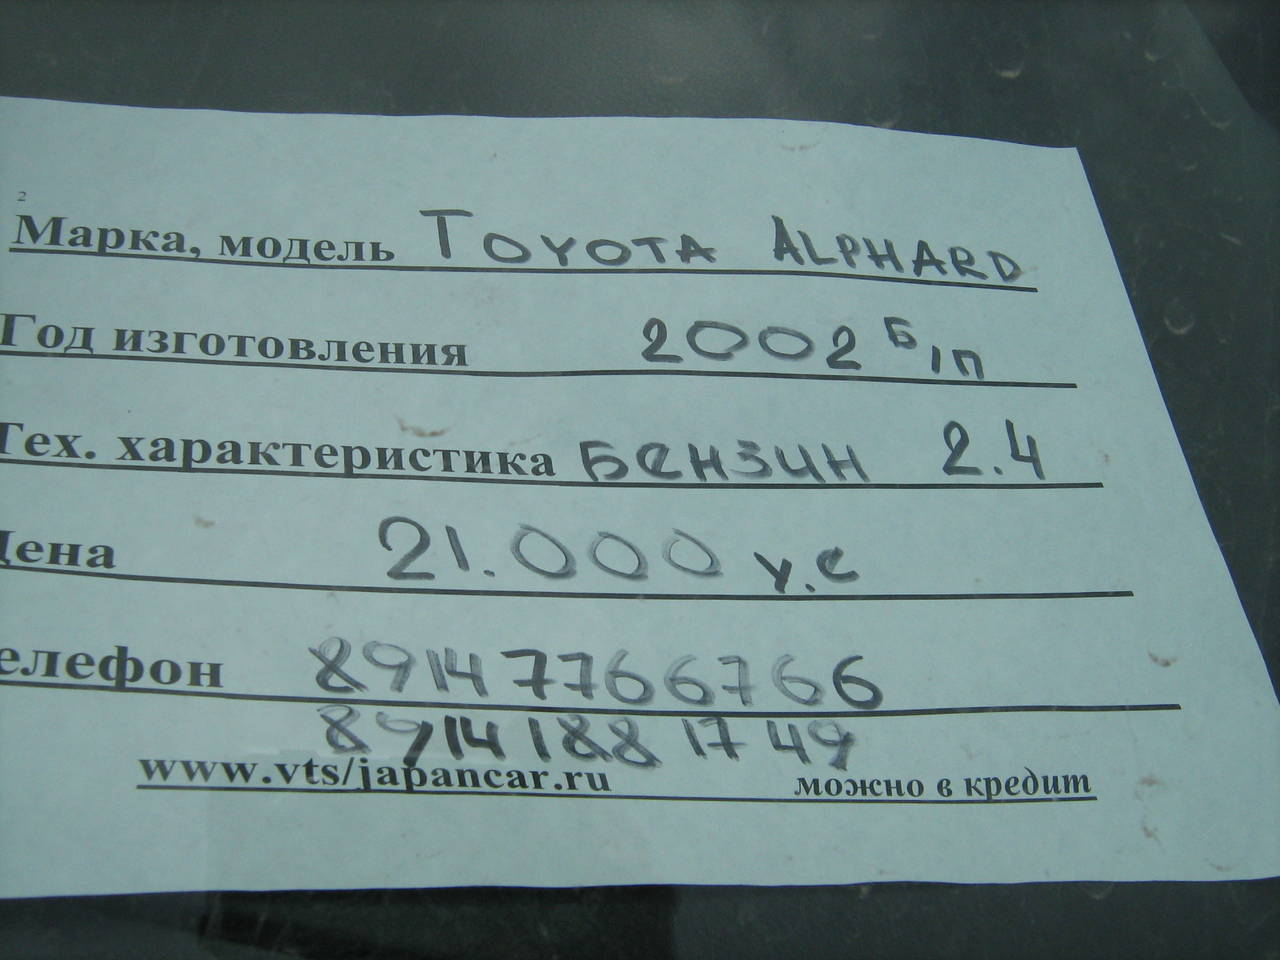 2
Марка, модель TOYOTA ALPHARD
Год изготовления 2002 Б/П
Тех. характеристика БЕНЗИН 2.4
Цена 21.000 У.Е
елефон 89147766766
89141881749
www.vts/japancar.ru можно в кредит